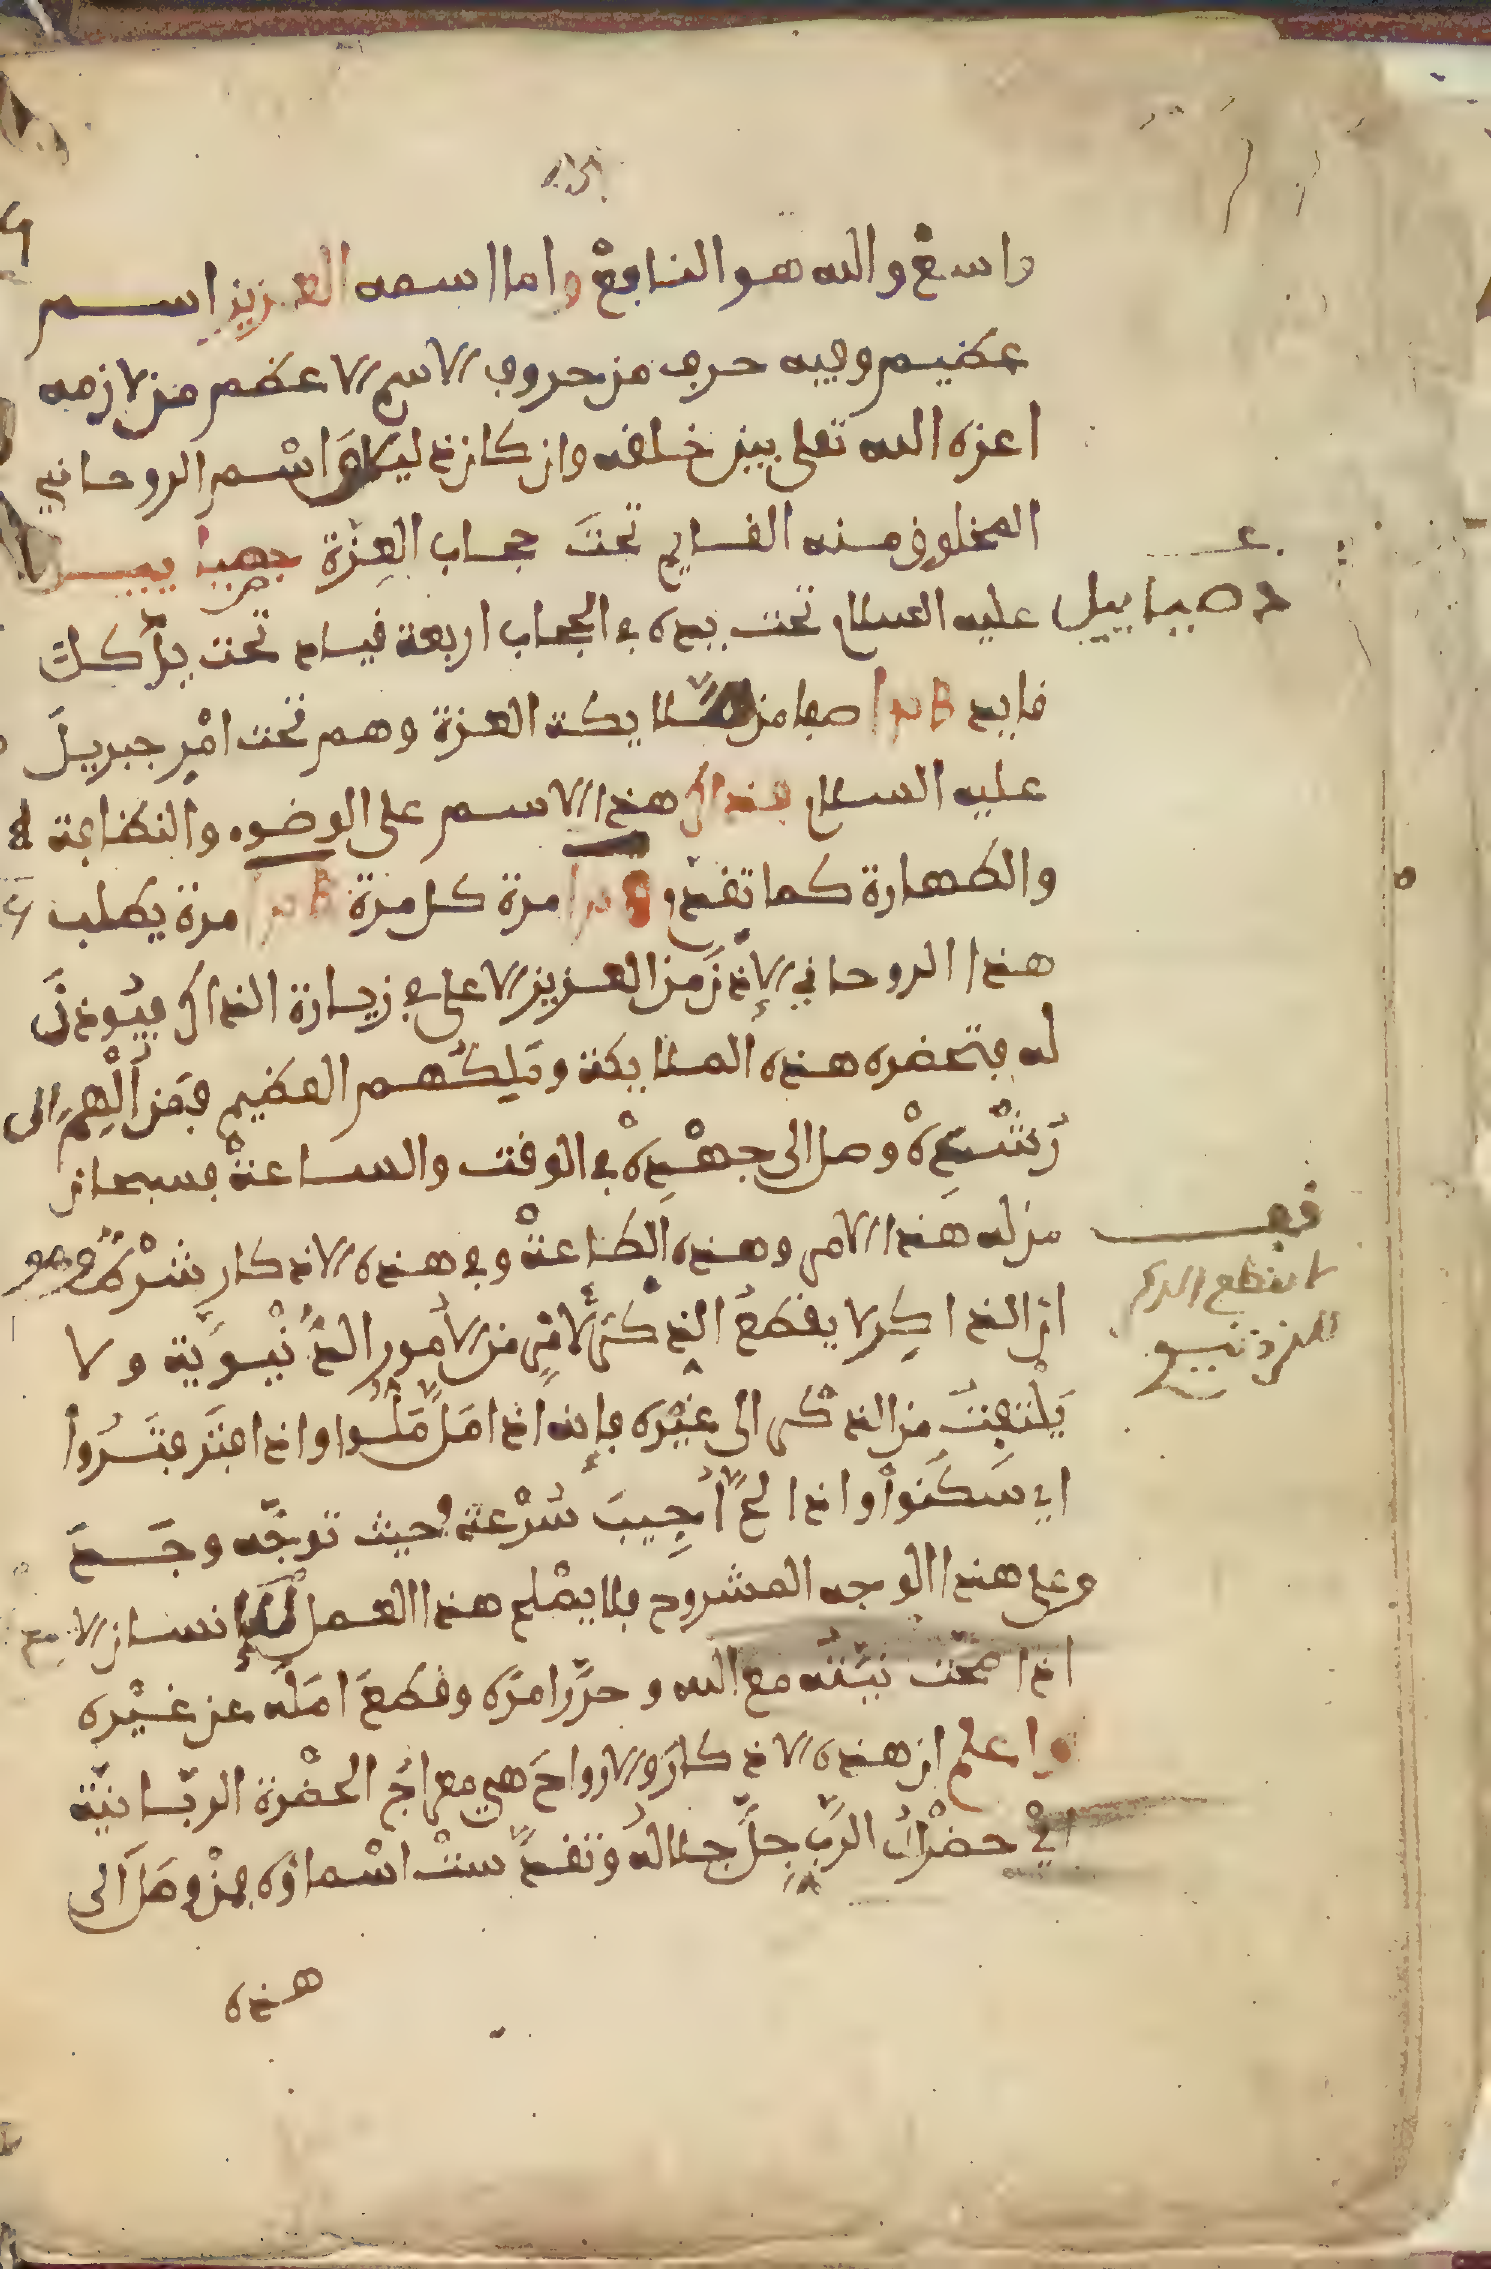 واسعْ والله هو النافعْ واما اسمه العزيز اسم
عظيم وفيه حرف من حروف الاسم الاعظم من لازمه
اعزه الله تعلى بين خلقه وان كان ذليلا واسْم الروحاني
المخلوق منه القايم تحتَ حجاب العِزّة
ع
دصباييل
عليه السلام تحت يده في الحجاب اربعة قيام تحت يد كل
قايد صفا من ملايكة العزة وهم تحت امْرِ جبريلَ
عليه السلام فذاكر هذا الاسم على الوضوء والنظافة
والطهارة كما تقدم مرة كل مرة مرة يطلب
هذا الروحاني الإذنَ من العزيز الاعلى في زيارة الذاكر فيُوذنَ
له فتحضره هذه الملايكة ومَلِكُهم العظيم فمَن أُلْهِمَ الى
رُشْدِهْ وصل الى جهْدِهْ في الوقت والساعةْ فسبحان
من له هَذا الامر وهَذه الطاعةْ وفي هذه الاذكار شرْط وهو
قف
لا يقطع الذكر
ان الذاكر لا يقطعُ الذكر لامْرٍ من الأمور الدُّنْيوِيّة ولا
يَلْتفِتُ من الذكر الى غيْره فإنه اذا مَلَّ مَلُّوا واذا فتَر فتَرُوا
اي سَكَنُواْ واذا لحَّ أُجِيبَ سُرْعة وحيث توجّه وجَدَ
وعلى هذا الوجه المشروح فلا يصْلح هذا العمل للإنسان الا
اذا صحّت نيّتُه مع الله وحرَّر امرَه وقطعَ امَلَه عن غيْره
واعلم ان هذه الاذكارَ والارواحَ هي معراجُ الحضْرة الربّانيّة
ايْ حضْرةُ الرّبِّ جلَّ جلالهُ وتقدّستْ اسْماؤه فمنْ وصَلَ الى
هذه